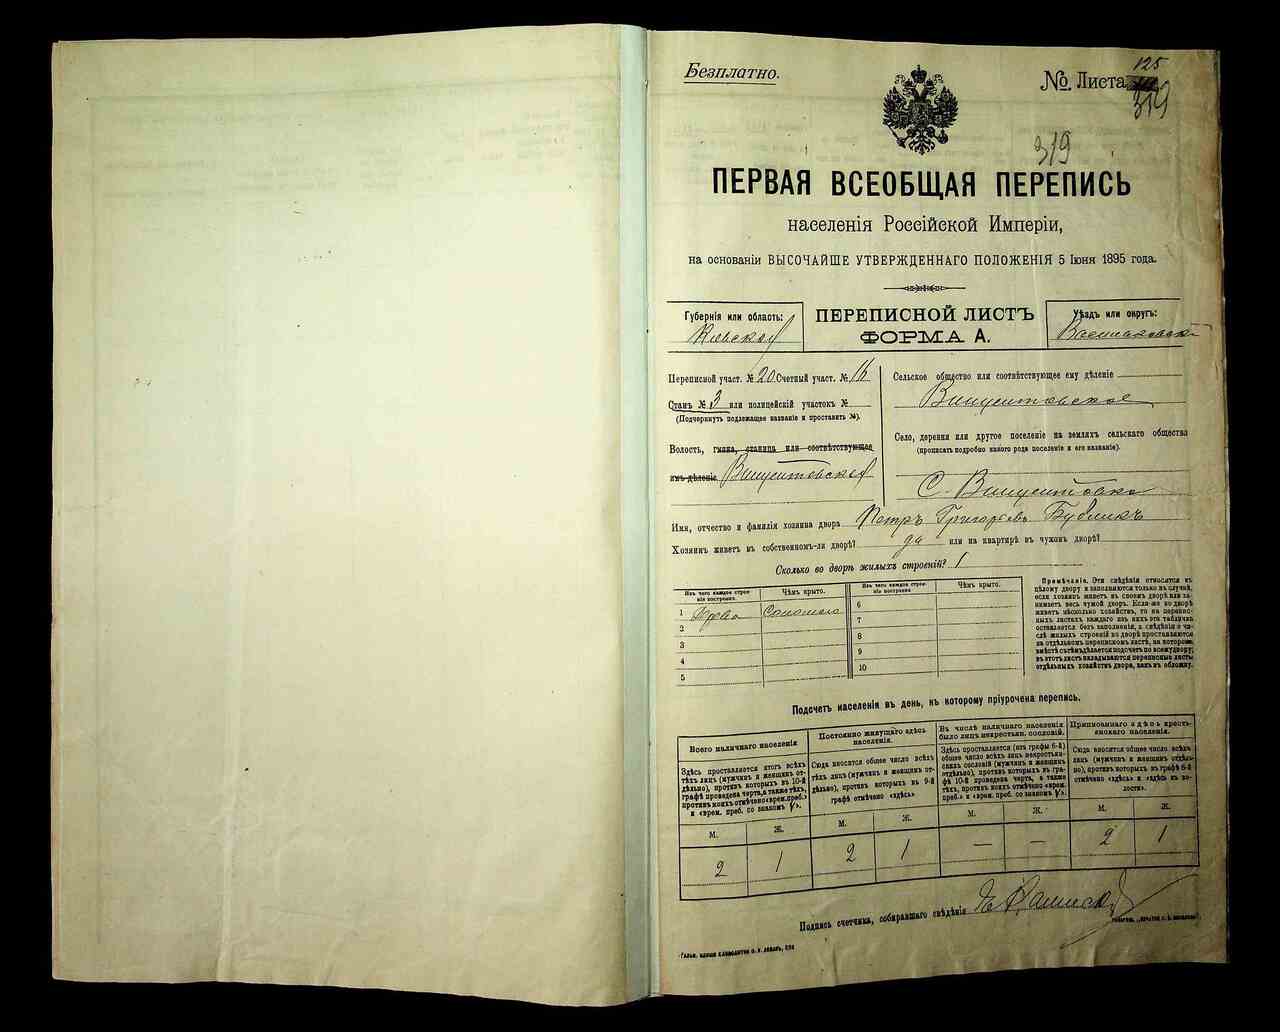 Безплатно.
№ Листа 125
319
319
ПЕРВАЯ ВСЕОБЩАЯ ПЕРЕПИСЬ
населенія Россійской Имперіи,
на основаніи ВЫСОЧАЙШЕ УТВЕРЖДЕННАГО ПОЛОЖЕНІЯ 5 Іюня 1895 года.
Губернія или область:
Кіевская
ПЕРЕПИСНОЙ ЛИСТЪ
ФОРМА А.
Уѣздъ или округъ:
Переписной участ. № 20 Счетный участ. № 16
Станъ № 3 или полицейскій участокъ №
(Подчеркнуть подлежащее названіе и проставить №).
Волость, гмина, станица или соотвѣтствующее
имъ дѣленіе
Сельское общество или соотвѣтствующее ему дѣленіе
Село, деревня или другое поселеніе на земляхъ сельскаго общества
(прописать подробно какого рода поселеніе и его названіе).
С.
Имя, отчество и фамилія хозяина двора Петръ Григорьевъ Бубликъ
Хозяинъ живетъ въ собственномъ-ли дворѣ? да или на квартирѣ въ чужомъ дворѣ?
Сколько во дворѣ жилыхъ строеній? 1
Изъ чего каждое строеніе построено. Чѣмъ крыто. Изъ чего каждое строеніе построено. Чѣмъ крыто.
1 Древа Соломою 6
2 7
3 8
4 9
5 10
Примѣчаніе. Эти свѣдѣнія относятся къ
цѣлому двору и заполняются только въ случаѣ,
если хозяинъ живетъ въ своемъ дворѣ или занимаетъ
весь чужой дворъ. Если-же во дворѣ
живетъ нѣсколько хозяйствъ, то на переписныхъ
листахъ каждаго изъ нихъ эта табличка
оставляется безъ заполненія, а свѣдѣнія о числѣ
жилыхъ строеній во дворѣ проставляются
на отдѣльномъ переписномъ листѣ, на которомъ
вмѣстѣ съ тѣмъ дѣлается подсчетъ по всему двору;
въ этотъ листъ вкладываются переписные листы
отдѣльныхъ хозяйствъ двора, какъ въ обложку.
Подсчетъ населенія въ день, къ которому пріурочена перепись.
Всего наличнаго населенія
Здѣсь проставляется итогъ всѣхъ
тѣхъ лицъ (мужчинъ и женщинъ отдѣльно),
противъ которыхъ въ 10-й
графѣ проведена черта, а также тѣхъ,
противъ коихъ отмѣчено «врем. преб.»
и «врем. преб. со знакомъ V».
Постоянно живущаго здѣсь
населенія.
Сюда вносится общее число всѣхъ
тѣхъ лицъ (мужчинъ и женщинъ отдѣльно),
противъ которыхъ въ 9-й
графѣ отмѣчено «здѣсь»
Въ числѣ наличнаго населенія
было лицъ некрестьян. сословій.
Здѣсь проставляется (изъ графы 6-й)
общее число всѣхъ лицъ некрестьянскихъ
сословій (мужчинъ и женщинъ
отдѣльно), противъ которыхъ въ графѣ
10-й проведена черта, а также
тѣхъ, противъ коихъ отмѣчено «врем.
преб.» и «врем. преб. со знакомъ V».
Приписаннаго здѣсь крестьянскаго
населенія.
Сюда вносится общее число всѣхъ
лицъ (мужчинъ и женщинъ отдѣльно),
противъ которыхъ въ графѣ 8-й
отмѣчено «здѣсь» и «здѣсь въ волости».
М. Ж. М. Ж. М. Ж. М. Ж.
2 1 2 1 — — 2 1
Подпись счетчика, собиравшаго свѣдѣнія